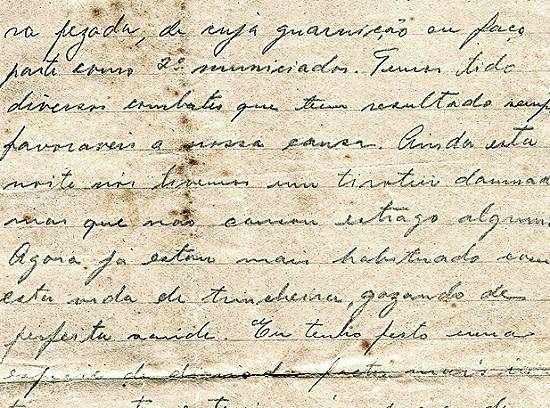 ra pezada, de cuja guarnição eu faço
parte como 2º municiador. Temos tido
diversos combates que tem resultado semp
favoraveis a nossa causa. Ainda esta
noite nós tivemos um tiroteio damnad
mas que não causou estrago algum
Agora ja estou mais habituado com
esta vida de trincheira, gozando de
perfeita saude. Eu tenho feito uma
especie de diario de factos mais